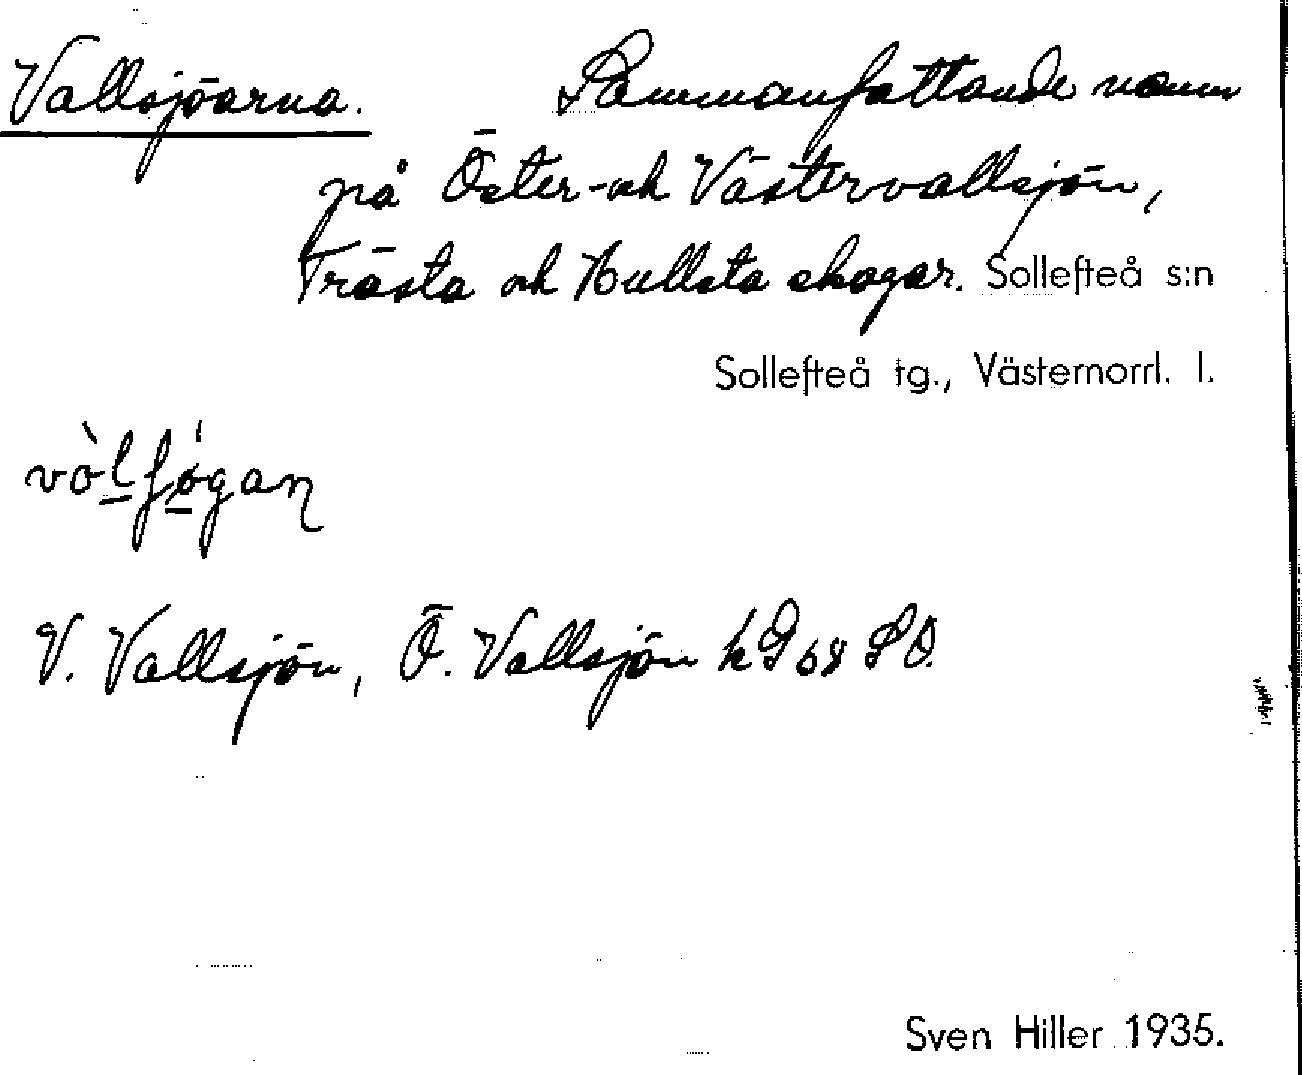 Vallsjöarna. Sammanfattande namn
på Öster- och Västervallsjön,
Trästa och Hullsta skogar. Sollefteå s:n
Sollefteå tg., Västernorrl. l.
V. Vallsjön, Ö. Vallsjön kG 68 SO.
Sven Hiller 1935.